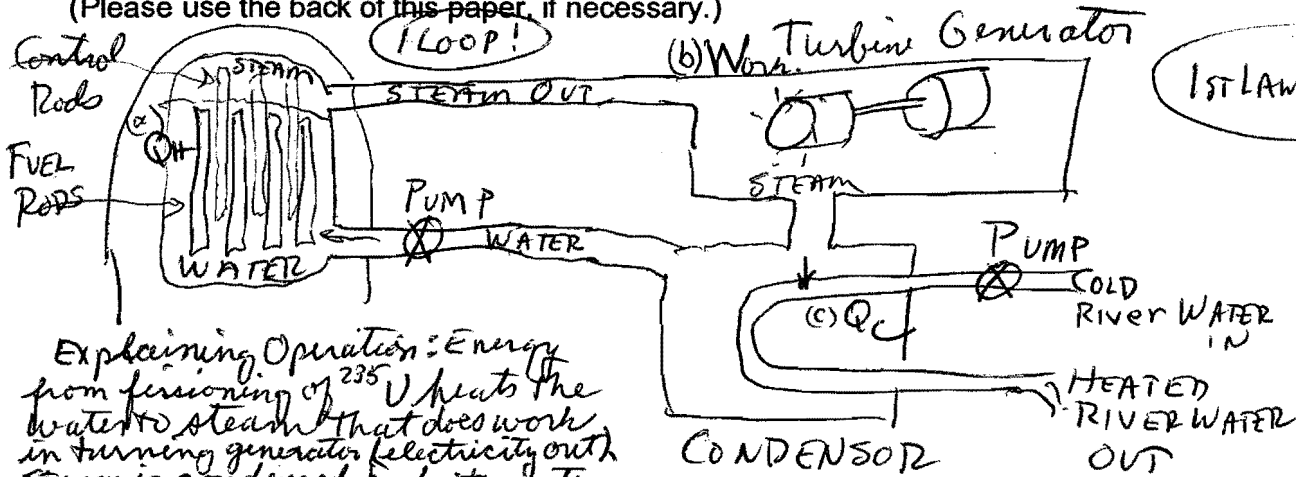 (Please use the back of this paper, if necessary.)
1 LOOP!
Control
Rods
STEAM
STEAM OUT
(b) Work.
Turbine Generator
1ST LAW
(a)
QH
FUEL
RODS
STEAM
PUMP
WATER
WATER
PUMP
COLD
River WATER
IN
(c) QC
HEATED
RIVER WATER
OUT
CONDENSOR
Explaining Operation: Energy
from fissioning of 235U heats the
water to steam that does work
in turning generator (electricity out)